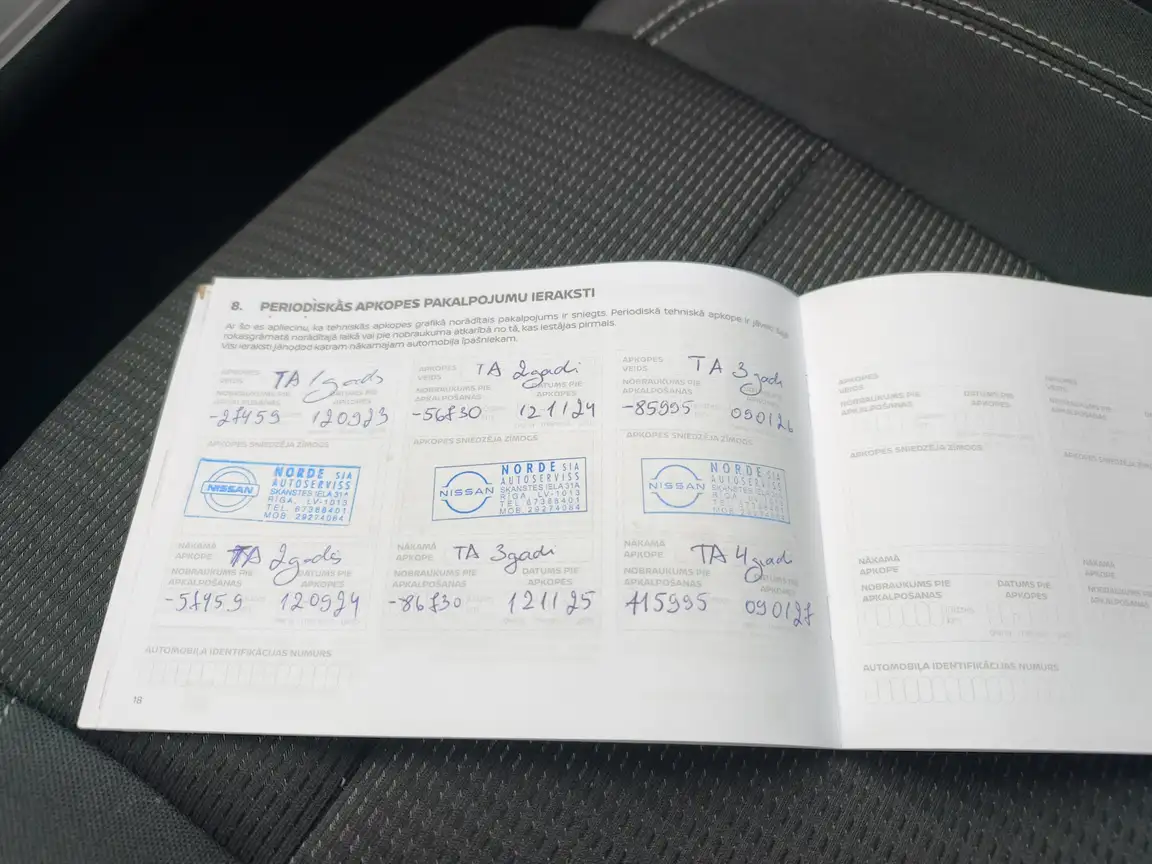 8. PERIODISKĀS APKOPES PAKALPOJUMU IERAKSTI
Ar šo es apliecinu, ka tehniskās apkopes grafikā norādītais pakalpojums ir sniegts. Periodiskā tehniskā apkope ir jāveic šajā
rokasgrāmatā norādītajā laikā vai pie nobraukuma atkarībā no tā, kas iestājas pirmais.
Visi ieraksti jānodod katram nākamajam automobiļa īpašniekam.
APKOPES VEIDS TA 1 gads
NOBRAUKUMS PIE APKALPOŠANAS DATUMS PIE APKOPES
-27459 120923
APKOPES SNIEDZĒJA ZĪMOGS
NISSAN
NORDE SIA
AUTOSERVISS
SKANSTES IELA 31A
RĪGA, LV-1013
TEL. 67388401
MOB. 29274064
NĀKAMĀ APKOPE TA 2gadi
NOBRAUKUMS PIE APKALPOŠANAS DATUMS PIE APKOPES
-57459 120924
APKOPES VEIDS TA 2gadi
NOBRAUKUMS PIE APKALPOŠANAS DATUMS PIE APKOPES
-56730 121124
APKOPES SNIEDZĒJA ZĪMOGS
NISSAN
NORDE SIA
AUTOSERVISS
SKANSTES IELA 31A
RĪGA, LV-1013
TEL. 67388401
MOB. 29274064
NĀKAMĀ APKOPE TA 3gadi
NOBRAUKUMS PIE APKALPOŠANAS DATUMS PIE APKOPES
-86730 121125
APKOPES VEIDS TA 3gadi
NOBRAUKUMS PIE APKALPOŠANAS DATUMS PIE APKOPES
-85995 090126
APKOPES SNIEDZĒJA ZĪMOGS
NISSAN
NORDE SIA
AUTOSERVISS
SKANSTES IELA 31A
RĪGA, LV-1013
TEL. 67388401
MOB. 29274064
NĀKAMĀ APKOPE TA 4gadi
NOBRAUKUMS PIE APKALPOŠANAS DATUMS PIE APKOPES
115995 090127
AUTOMOBIĻA IDENTIFIKĀCIJAS NUMURS
18
APKOPES VEIDS
NOBRAUKUMS PIE APKALPOŠANAS DATUMS PIE APKOPES
APKOPES SNIEDZĒJA ZĪMOGS
NĀKAMĀ APKOPE
NOBRAUKUMS PIE APKALPOŠANAS DATUMS PIE APKOPES
AUTOMOBIĻA IDENTIFIKĀCIJAS NUMURS
APKOPES VEIDS
NOBRAUKUMS PIE APKALPOŠANAS
APKOPES SNIEDZĒJA
NĀKAMĀ APKOPE
NOBRAUKUMS PIE APKALPOŠANAS